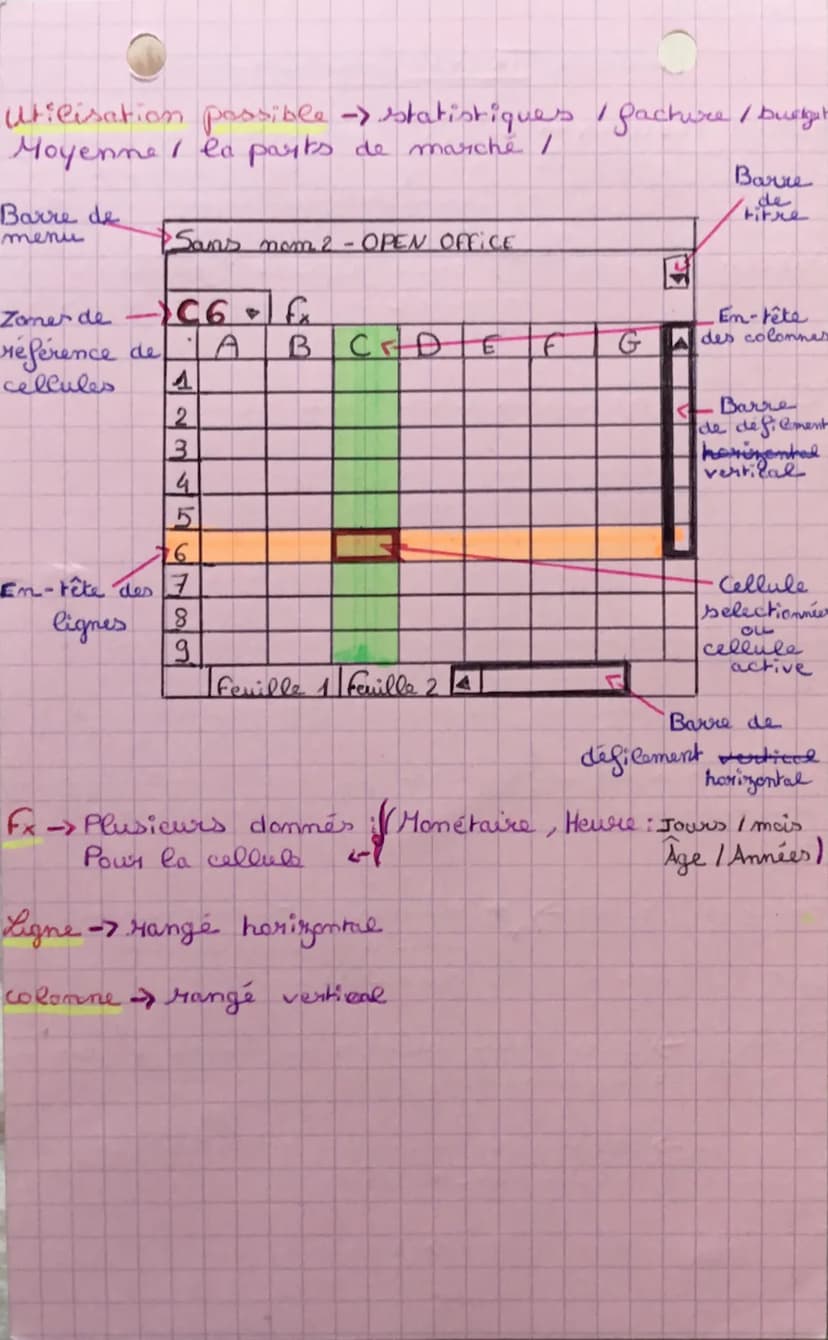 Utilisation possible -> statistiques / facture / budget
Moyenne / la parts de marché /
Barre de titre
Barre de menu
Sans nom 2 - OPEN OFFICE
Zones de référence de cellules
C6 fx
En-tête des colonnes
A B C D E F G
1
2
3
4
5
6
7
8
9
Barre de défilement horizontal vertical
En-tête des lignes
Cellule selectionnée ou cellule active
Feuille 1 Feuille 2
Barre de défilement vertical horizontal
Fx -> Plusieurs donnés : (Monétaire, Heure : Jours / mois
Pour la cellule Âge / Années)
Ligne -> rangé horizontal
colonne -> rangé vertical